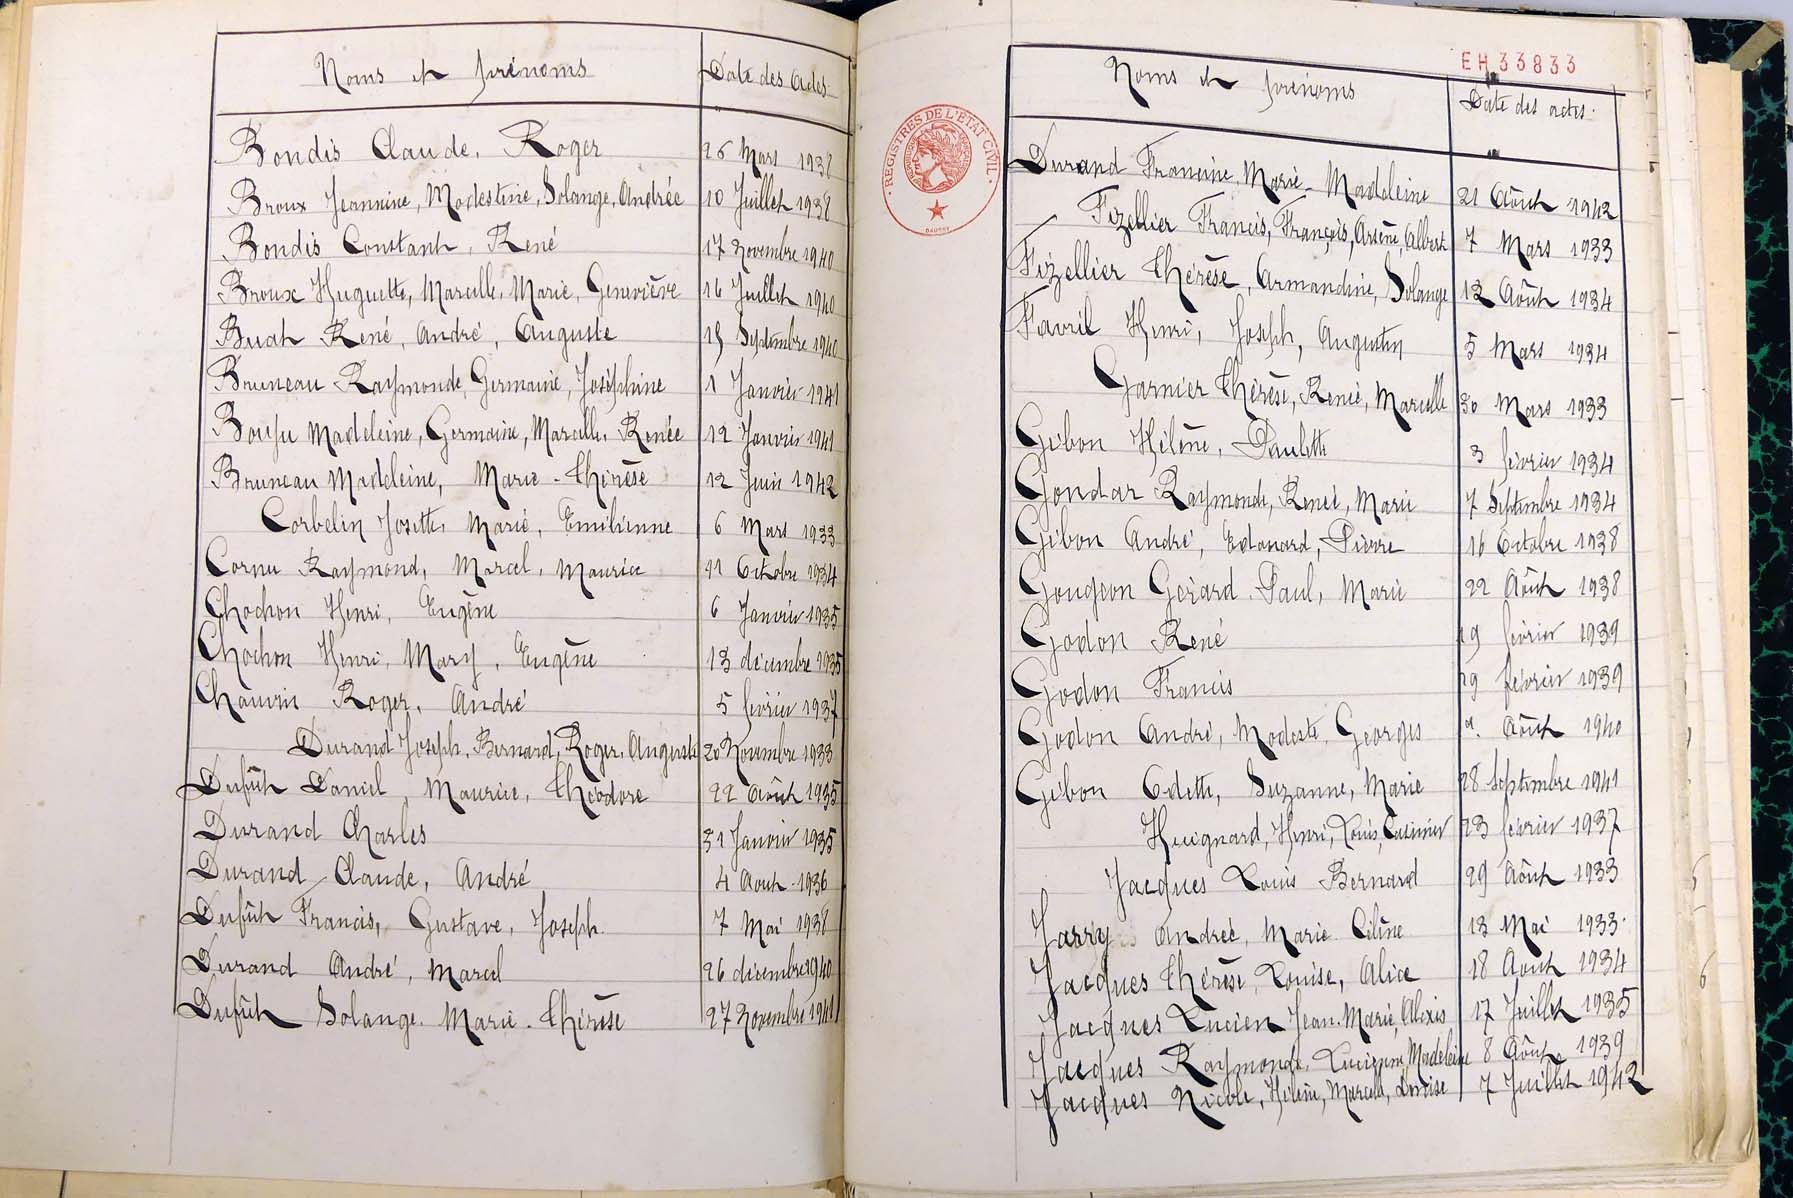 Noms et prénoms Date des actes
Bondis Claude, Roger 26 Mars 1938
Broux Jeannine, Modestine, Solange, Andrée 10 Juillet 1938
Bondis Constant, René 17 Novembre 1940
Broux Huguette, Marcelle, Marie, Geneviève 16 Juillet 1940
Buat René, André, Auguste 15 Septembre 1940
Bruneau Raymonde, Germaine, Joséphine 1 Janvier 1941
Madeleine, Germaine, Marcelle, Renée 12 Janvier 1941
Bruneau Madeleine, Marie-Thérèse 12 Juin 1942
Corbelin Josette, Marie, Emilienne 6 Mars 1933
Cornu Raymond, Marcel, Maurice 11 Octobre 1934
Chochon Henri, Eugène 6 Janvier 1935
Chochon Henri, Mary, Eugène 13 décembre 1935
Chauvin Roger, André 5 février 1937
Durand Joseph, Bernard, Roger, Auguste 20 Novembre 1933
Dufût Daniel, Maurice, Théodore 22 Août 1935
Durand Charles 31 Janvier 1935
Durand Claude, André 4 Aout 1936
Dufût Francis, Gustave, Joseph 7 Mai 1938
Durand André, Marcel 26 décembre 1940
Dufût Solange Marie-Thérèse 27 Novembre 1941
REGISTRES DE L'ETAT CIVIL
EH33833
Noms et prénoms Date des actes
Durand Francine, Marie-Madeleine 21 Août 1942
Fizellier Francis, François, Arsène, Albert 7 Mars 1933
Fizellier Thérèse, Armandine, Solange 12 Août 1934
Favril Henri, Joseph, Augustin 5 Mars 1934
Garnier Thérèse, Renée, Marcelle 30 Mars 1933
Gibon Hélène, Paulette 3 février 1934
Gondar Raymonde, Renée, Marie 7 Septembre 1934
Gibon André, Edouard, Pierre 16 Octobre 1938
Gougeon Gérard, Paul, Marie 22 Août 1938
Godon René 19 février 1939
Godon Francis 19 février 1939
Godon André, Modeste, Georges Août 1940
Gibon Odette, Suzanne, Marie 28 Septembre 1941
Huignard, Henri, Louis, Casimir 23 février 1937
Jacques Louis Bernard 29 Août 1933
Jarry Andrée, Marie Céline 13 Mai 1933
Jacques Thérèse, Louise, Alice 18 Aout 1934
Jacques Lucien Jean-Marie, Alexis 17 Juillet 1935
Jacques Raymonde, Lucienne, Madeleine 8 Août 1939
Jacques Nicole, Hélène, Marcelle, Denise 7 Juillet 1942